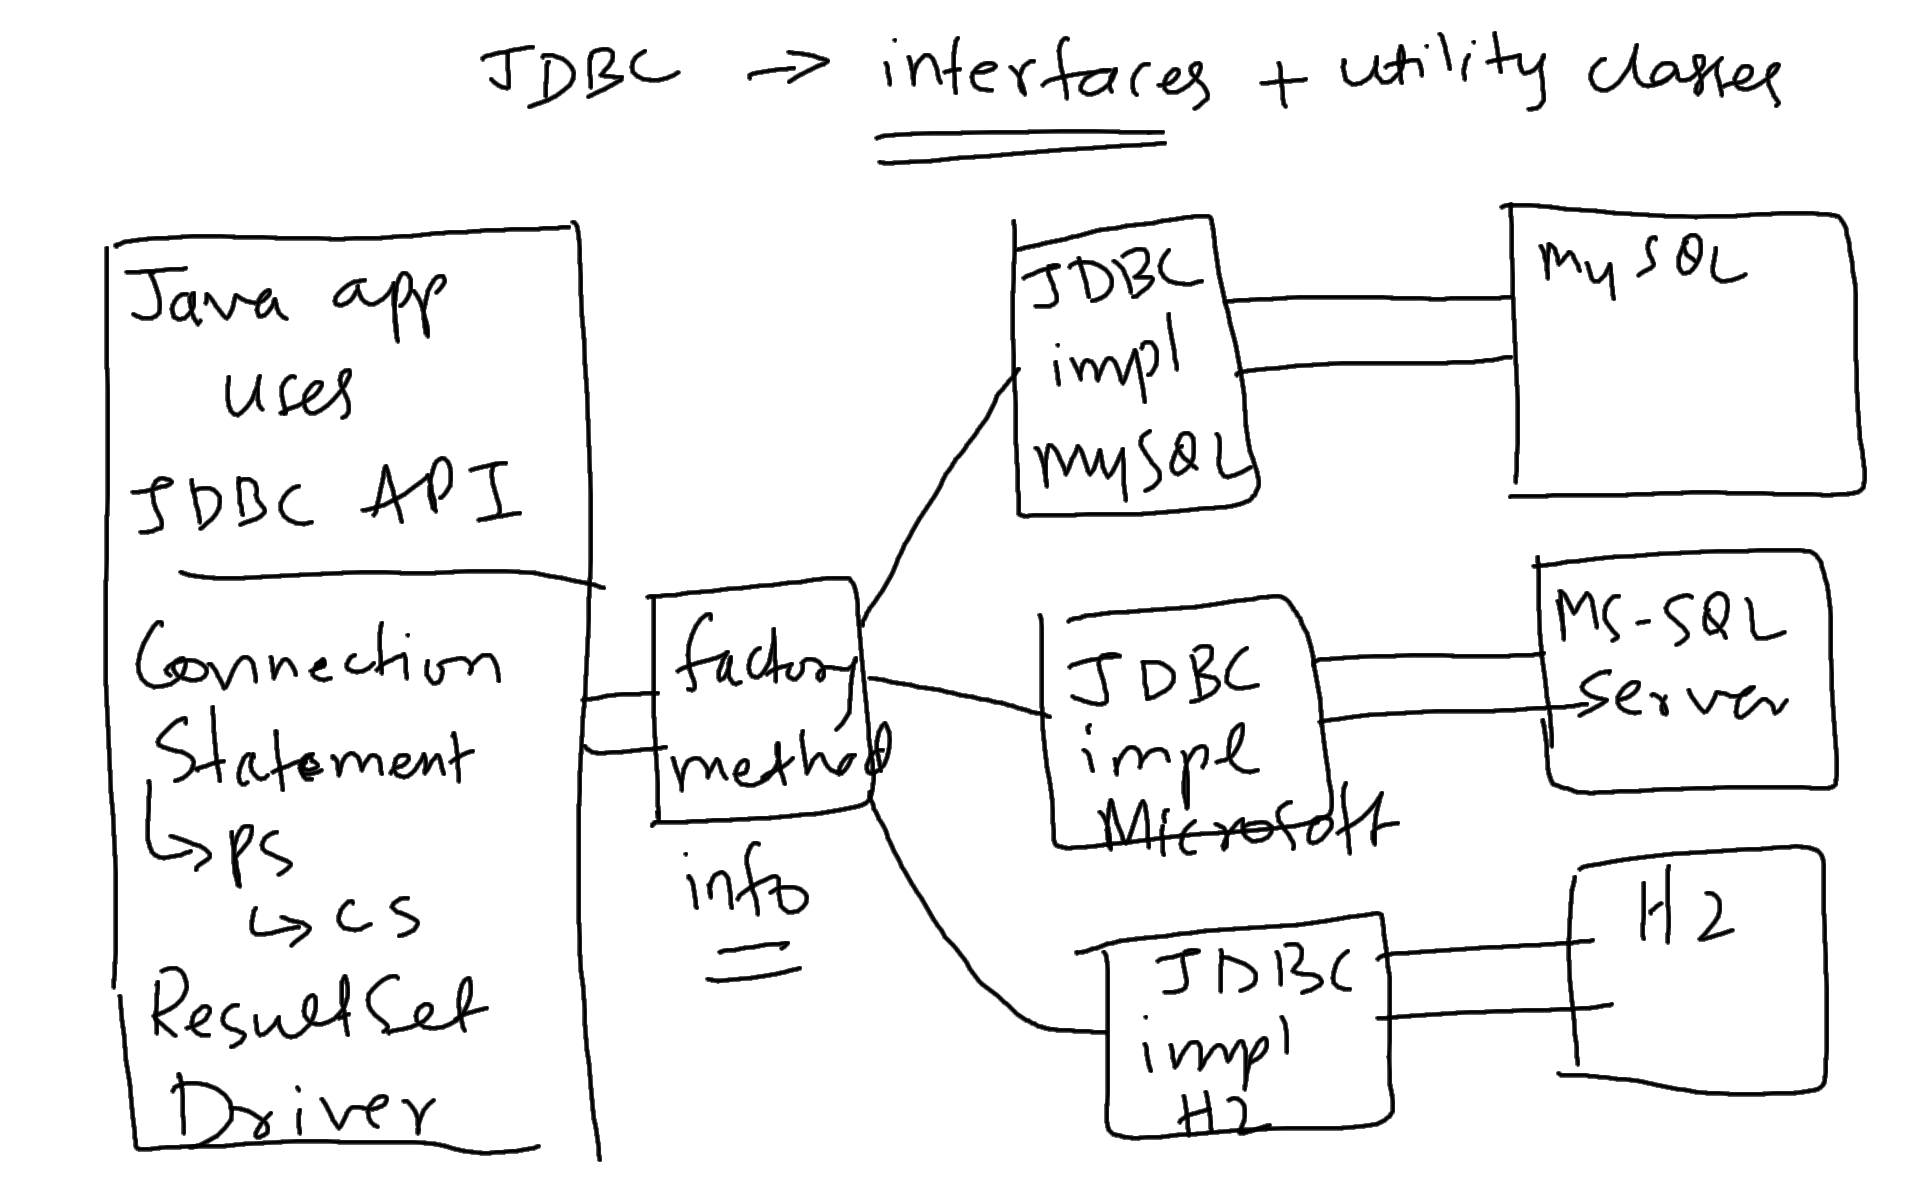 JDBC → interfaces + utility classes
Java app
uses
JDBC API
Connection
Statement
↳ PS
↳ CS
ResultSet
Driver
factory
method
info
JDBC
impl
MySQL
MySQL
JDBC
impl
Microsoft
MS-SQL
Server
JDBC
impl
H2
H2